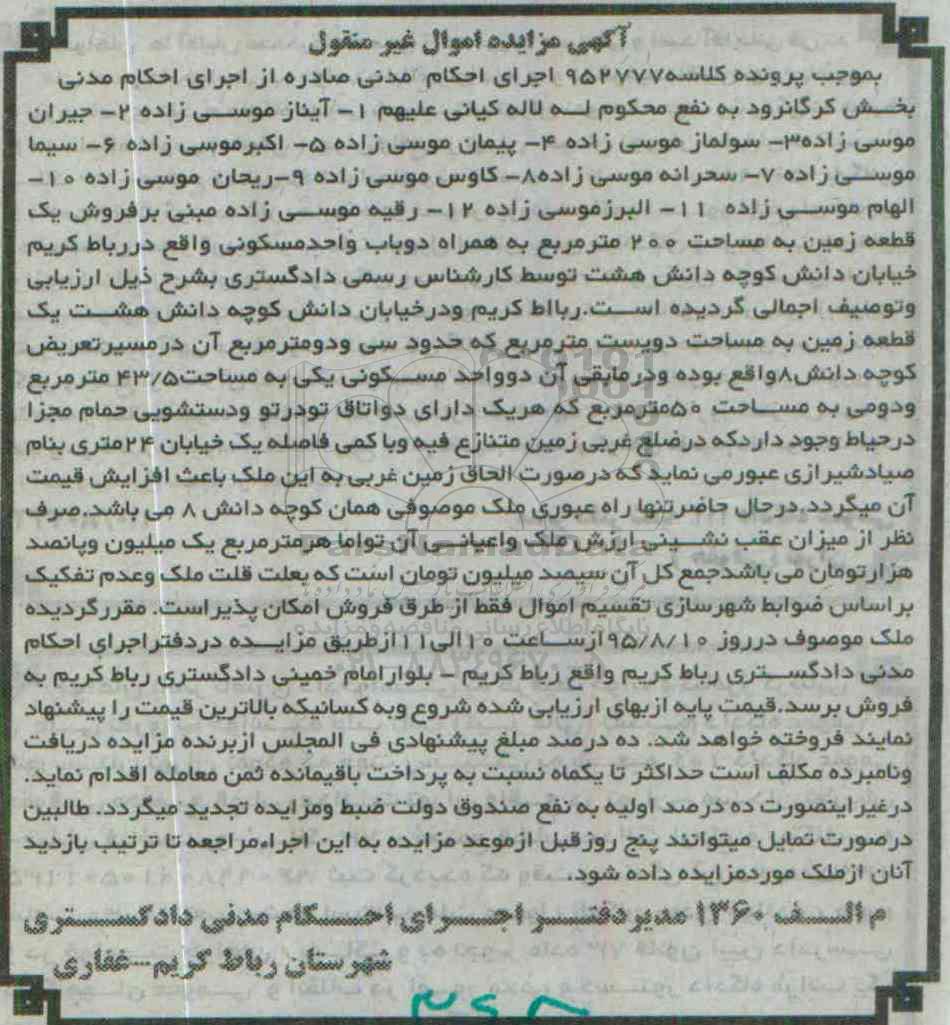 آگهی مزایده اموال غیر منقول
بموجب پرونده کلاسه۹۵۲۷۷۷ اجرای احکام مدنی صادره از اجرای احکام مدنی
بخش کرگانرود به نفع محکوم له لاله کیانی علیهم ۱- آیناز موسی زاده ۲- جیران
موسی زاده۳- سولماز موسی زاده ۴- پیمان موسی زاده ۵- اکبرموسی زاده ۶- سیما
موسی زاده ۷- سحرانه موسی زاده۸- کاوس موسی زاده ۹-ریحان موسی زاده ۱۰-
الهام موسی زاده ۱۱- البرزموسی زاده ۱۲- رقیه موسی زاده مبنی برفروش یک
قطعه زمین به مساحت ۲۰۰ مترمربع به همراه دوباب واحدمسکونی واقع دررباط کریم
خیابان دانش کوچه دانش هشت توسط کارشناس رسمی دادگستری بشرح ذیل ارزیابی
وتوصیف اجمالی گردیده است.ربااط کریم ودرخیابان دانش کوچه دانش هشت یک
قطعه زمین به مساحت دویست مترمربع که حدود سی ودومترمربع آن درمسیرتعریض
کوچه دانش۸واقع بوده ودرمابقی آن دوواحد مسکونی یکی به مساحت۴۳/۵ مترمربع
ودومی به مساحت ۵۰مترمربع که هریک دارای دواتاق تودرتو ودستشویی حمام مجزا
درحیاط وجود داردکه درضلع غربی زمین متنازع فیه وبا کمی فاصله یک خیابان ۲۴متری بنام
صیادشیرازی عبورمی نماید که درصورت الحاق زمین غربی به این ملک باعث افزایش قیمت
آن میگردد.درحال حاضرتنها راه عبوری ملک موصوفی همان کوچه دانش ۸ می باشد.صرف
نظر از میزان عقب نشینی ارزش ملک واعیانی آن تواما هرمترمربع یک میلیون وپانصد
هزارتومان می باشدجمع کل آن سیصد میلیون تومان است که بعلت قلت ملک وعدم تفکیک
براساس ضوابط شهرسازی تقسیم اموال فقط از طرق فروش امکان پذیراست. مقررگردیده
ملک موصوف درروز ۹۵/۸/۱۰ازساعت ۱۰الی۱۱ازطریق مزایده دردفتراجرای احکام
مدنی دادگستری رباط کریم واقع رباط کریم - بلوارامام خمینی دادگستری رباط کریم به
فروش برسد.قیمت پایه ازبهای ارزیابی شده شروع وبه کسانیکه بالاترین قیمت را پیشنهاد
نمایند فروخته خواهد شد. ده درصد مبلغ پیشنهادی فی المجلس ازبرنده مزایده دریافت
ونامبرده مکلف است حداکثر تا یکماه نسبت به پرداخت باقیمانده ثمن معامله اقدام نماید.
درغیراینصورت ده درصد اولیه به نفع صندوق دولت ضبط ومزایده تجدید میگردد. طالبین
درصورت تمایل میتوانند پنج روزقبل ازموعد مزایده به این اجراءمراجعه تا ترتیب بازدید
آنان ازملک موردمزایده داده شود.
م الف ۱۳۶۰ مدیردفتر اجرای احکام مدنی دادگستری
شهرستان رباط کریم-غفاری